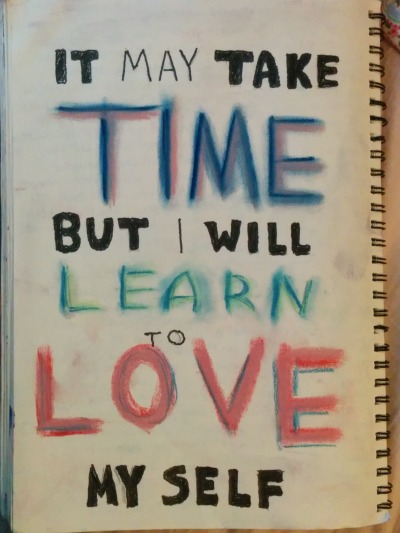 IT MAY TAKE
TIME
BUT I WILL
LEARN
TO
LOVE
MY SELF